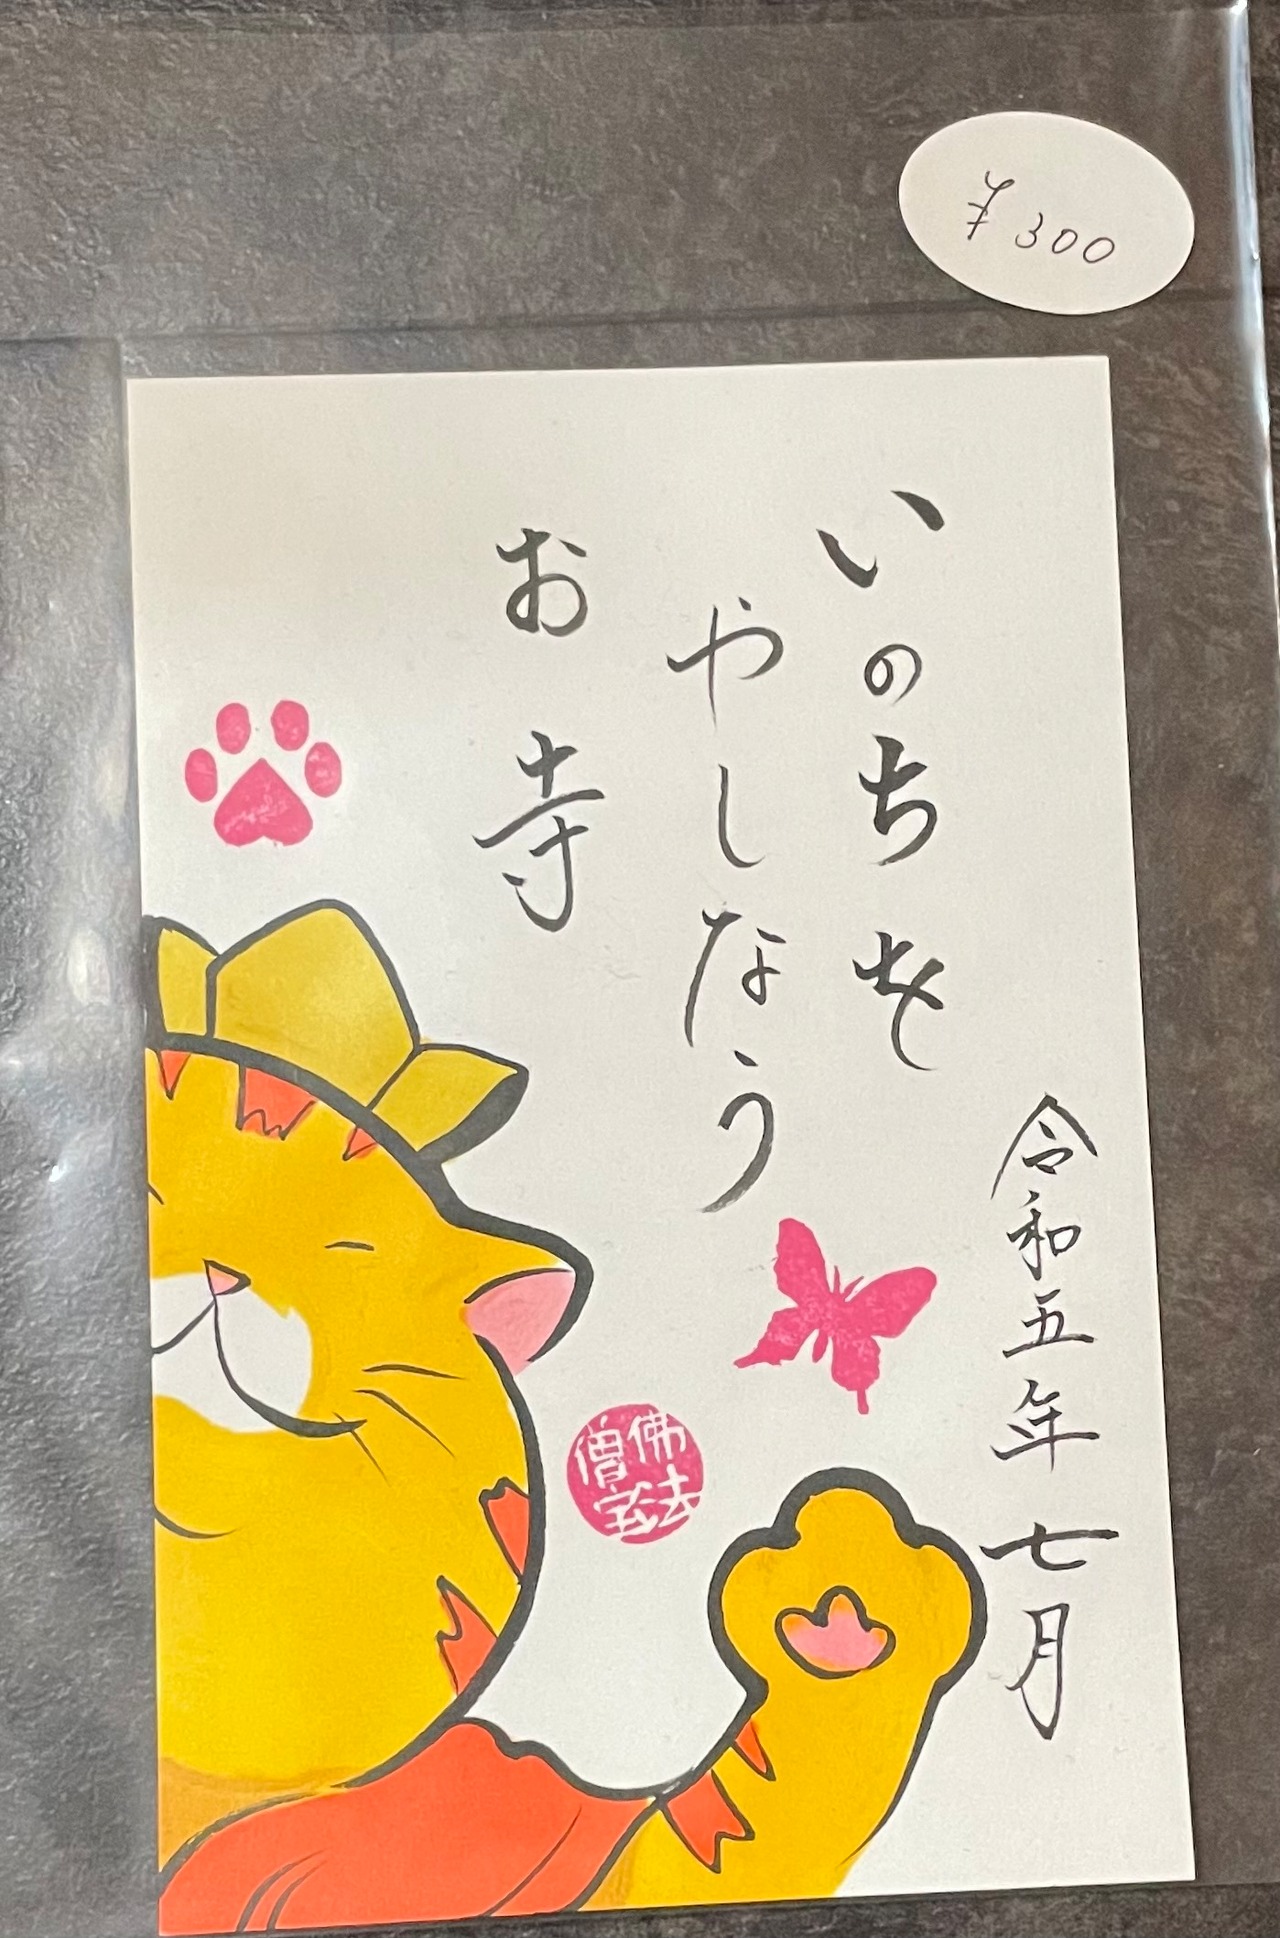 ¥300
いのちを
やしなう
お寺
令和五年七月
佛法
僧宝